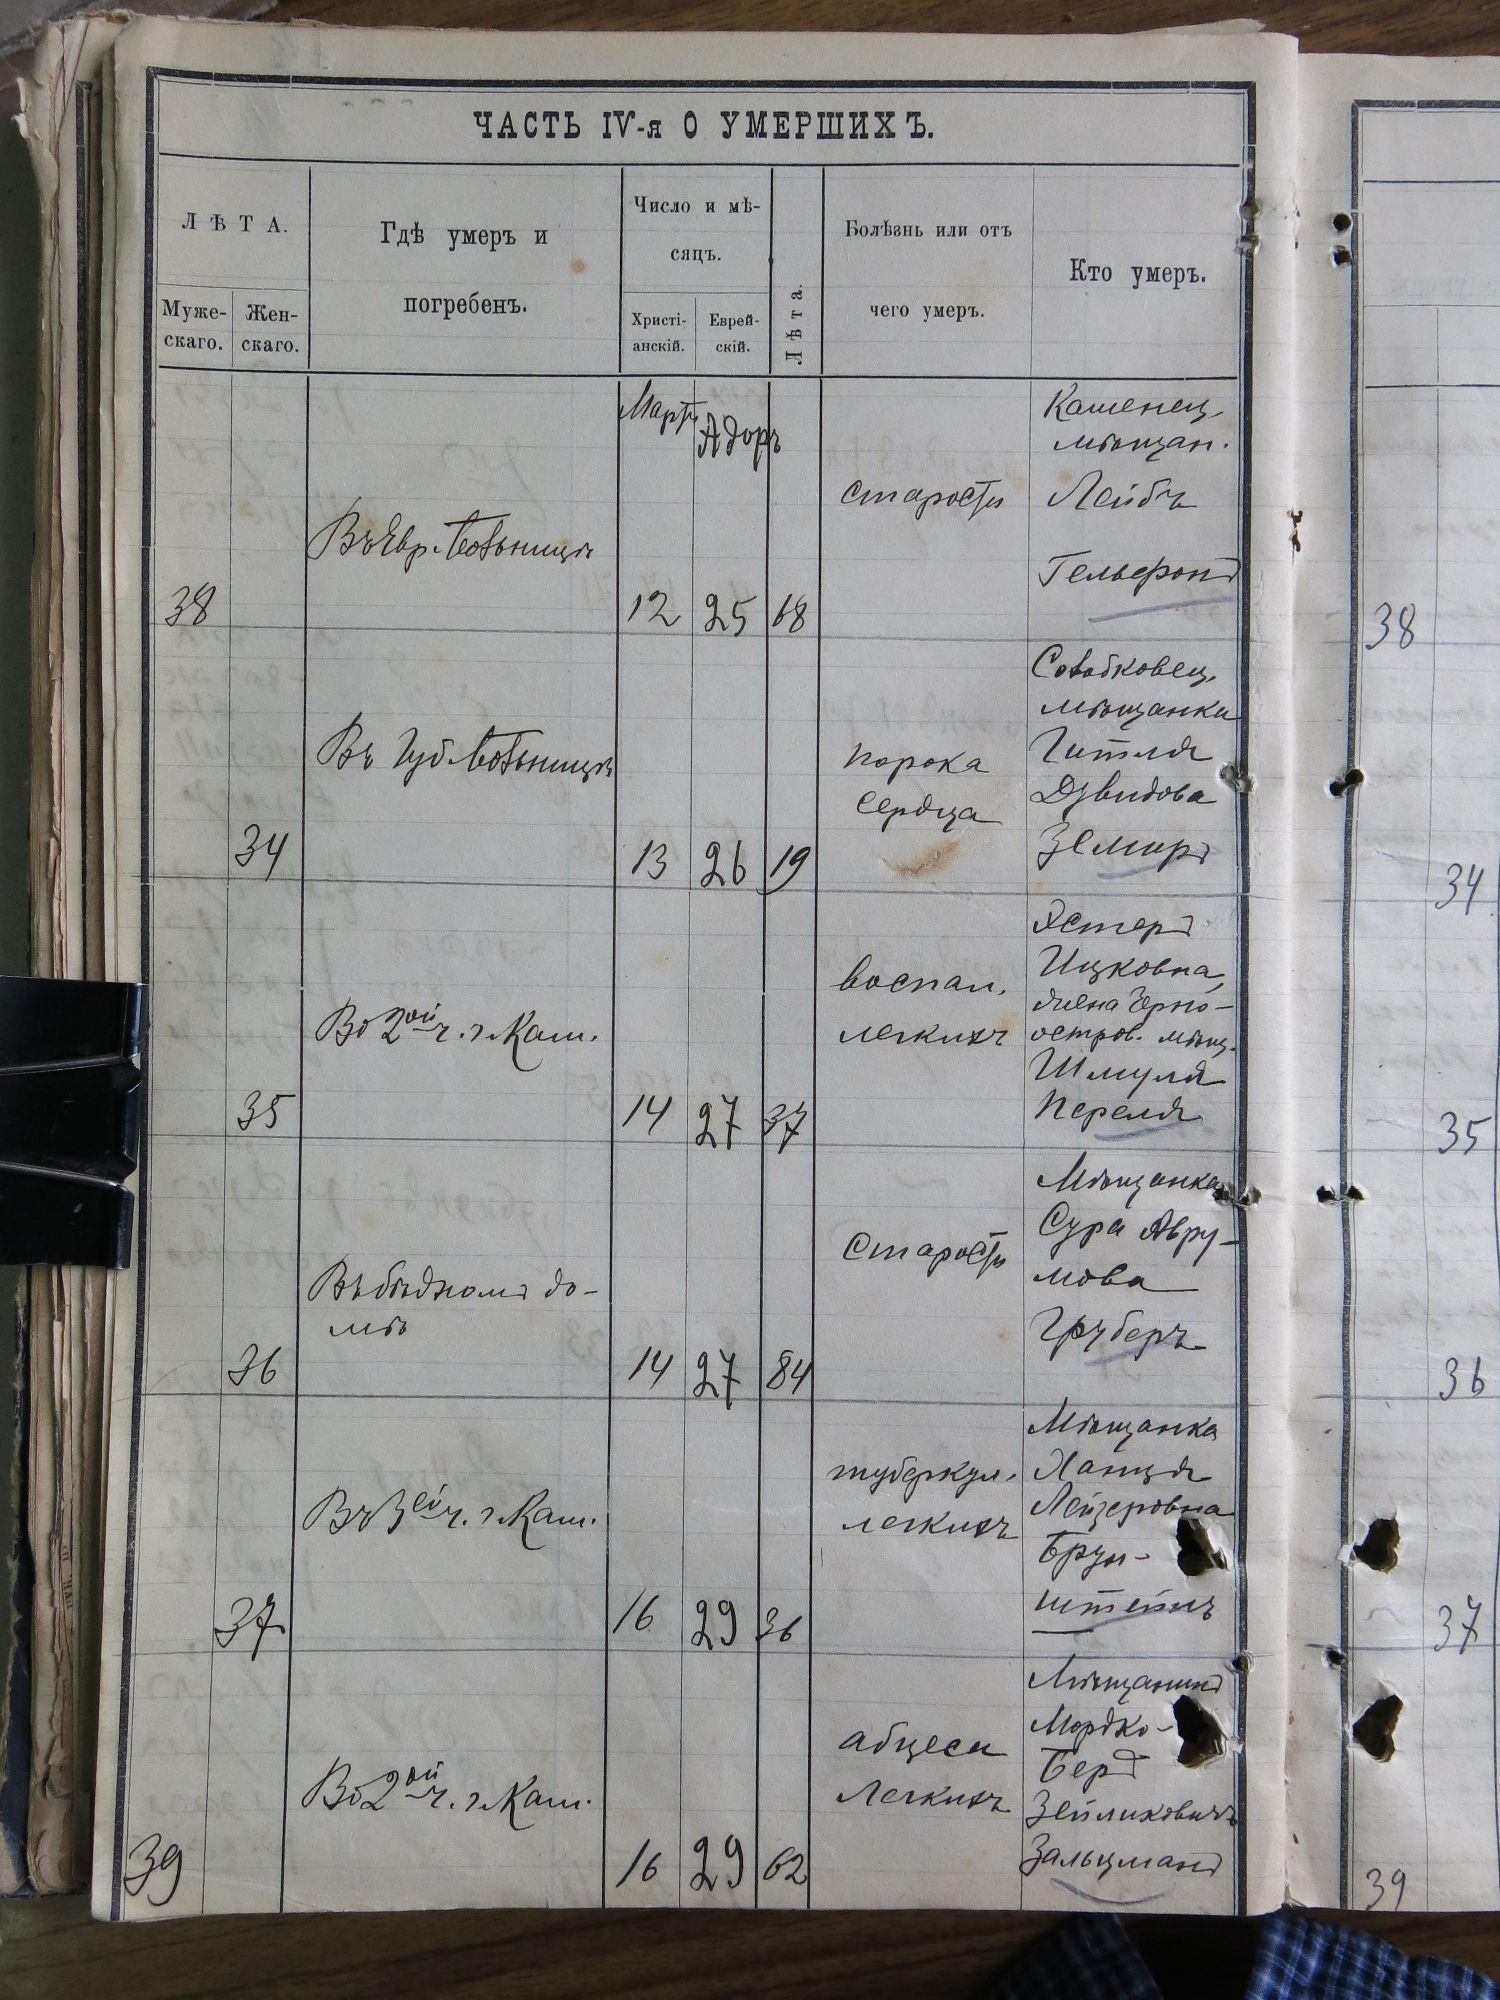 ЧАСТЬ IV-я О УМЕРШИХЪ.
ЛѢТА.
Муже-
скаго.
Жен-
скаго.
Гдѣ умеръ и
погребенъ.
Число и мѣ-
сяцъ.
Христі-
анскій.
Еврей-
скій.
Лѣта.
Болѣзнь или отъ
чего умеръ.
Кто умеръ.
Мартъ
Адоръ
38
Въ Евр. больницѣ
12
25
68
старости
Каменец.
мѣщан.
Лейбъ
Гельфонд
34
Въ Губ. больницѣ
13
26
19
порока
сердца
мѣщанка
Гитля
Дувидова
Земиръ
35
Во 2ой ч. г. Кам.
14
27
37
воспал.
легкихъ
Эстеръ
Ицковна,
жена Черно-
остров. мѣщ.
Шмуля
Переля
36
Въ бѣдномъ до-
мѣ
14
27
84
старости
Мѣщанка
Сура Авру-
мова
Груберъ
37
Въ 3ей ч. г. Кам.
16
29
36
туберкул.
легкихъ
Мѣщанка
Ханця
Лейзеровна
Брун-
штейнъ
39
Во 2ой ч. г. Кам.
16
29
62
абцеса
легкихъ
Мѣщанинъ
Мордко-
Беръ
Зейликовичъ
Зальцманъ
38
34
35
36
37
39